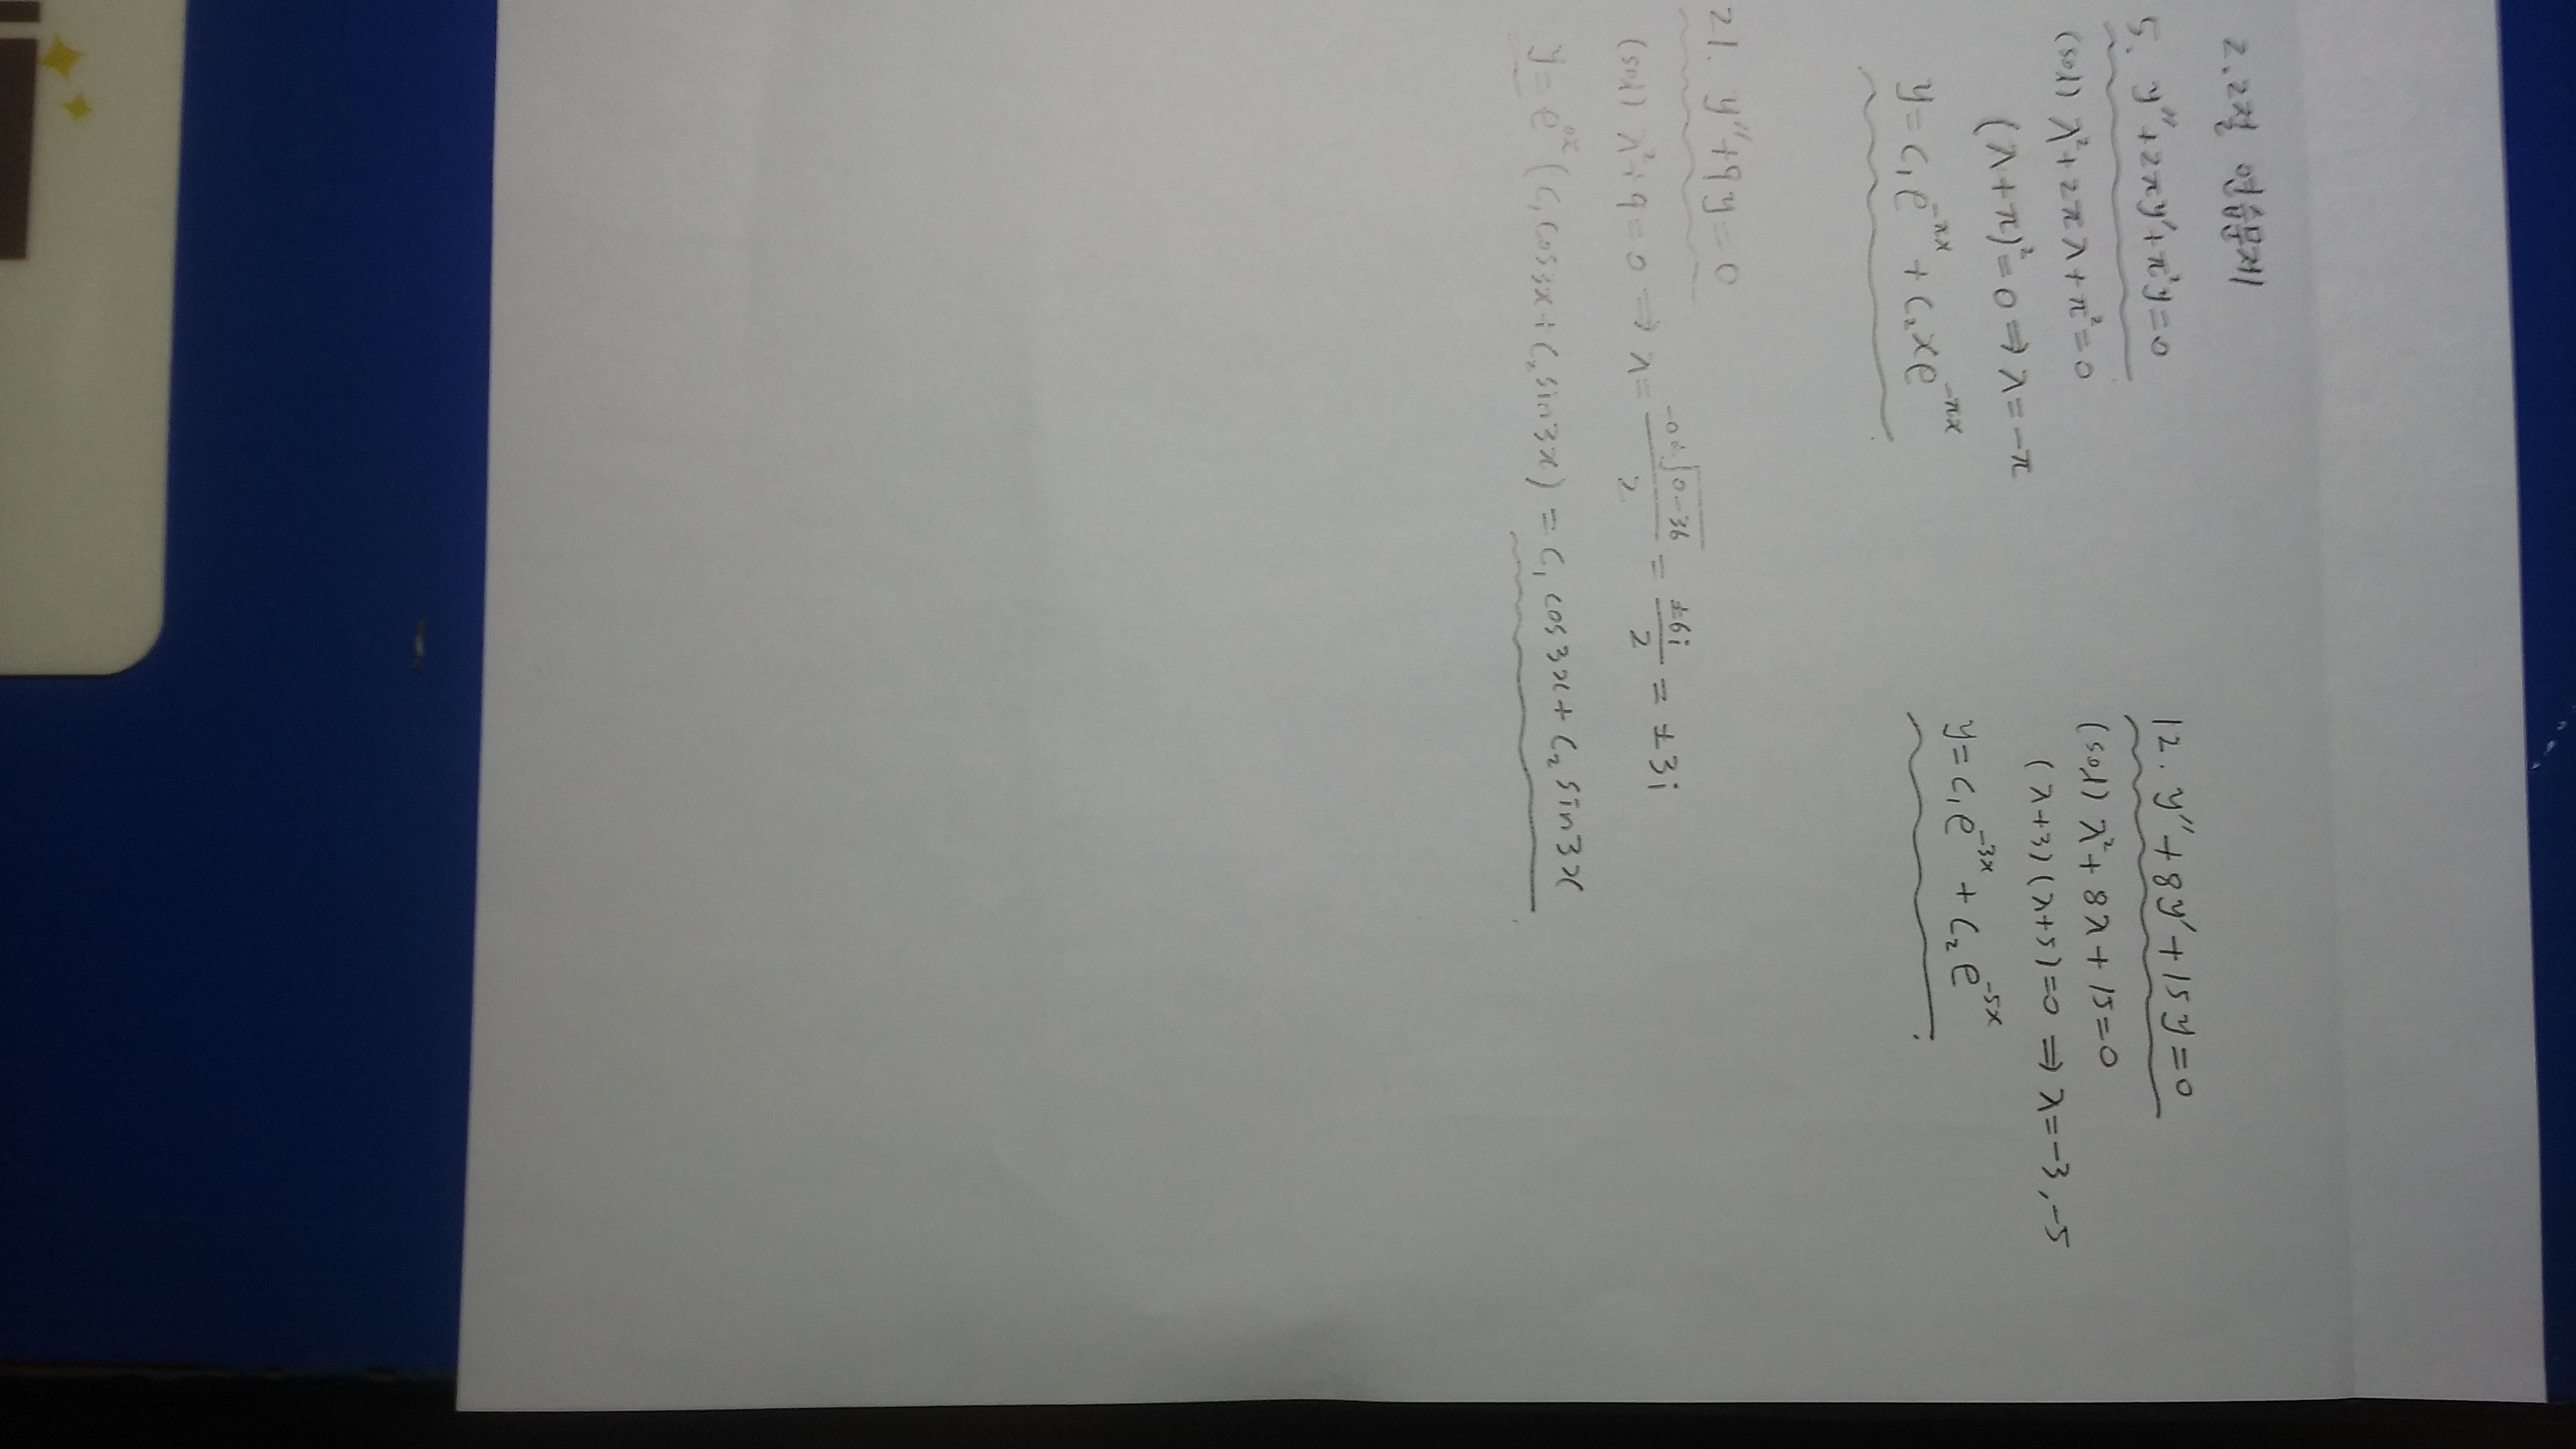 2.2절 연습문제
5. y''+2πy'+π²y=0
(sol) λ²+2πλ+π²=0
(λ+π)²=0 ⇒ λ=-π
y=c₁e^{-πx}+c₂xe^{-πx}
12. y''+8y'+15y=0
(sol) λ²+8λ+15=0
(λ+3)(λ+5)=0 ⇒ λ=-3,-5
y=c₁e^{-3x}+c₂e^{-5x}
21. y''+9y=0
(sol) λ²+9=0 ⇒ λ=\frac{-0±√(0-36)}{2}=\frac{±6i}{2}=±3i
y=e^{0x}(c₁cos3x+c₂sin3x)=c₁cos3x+c₂sin3x